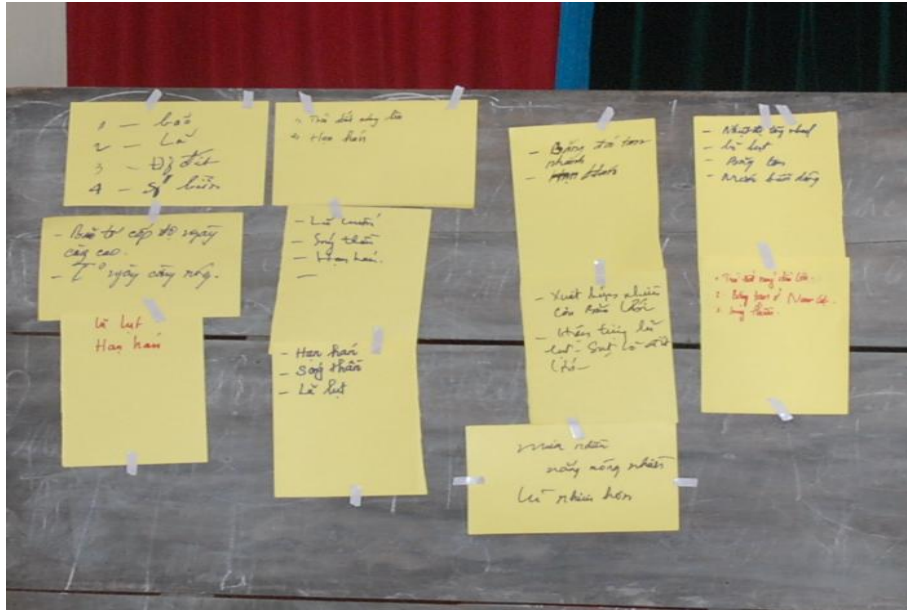 1 - bão
2 - Lũ
3 - Động đất
4 - Sg biển
- Bão tố cấp độ ngày
càng cao.
- Tº ngày càng nóng.
Lũ lụt
Hạn hán
1. Trái đất nóng lên
2. Hạn hán
- Lũ cuốn
- Sóng thần
- Hạn hán.
-
- Hạn hán
- Sóng thần
- Lũ lụt
- Băng tan
nhanh
-
- Xuất hiện nhiều
cơn bão lớn
- lũ
lụt - Sạt lở đất
mưa nhiều
nắng nóng nhiều
Lũ nhiều hơn
- Nhiệt độ tăng
- Lũ lụt
- Băng tan
- Nước biển dâng
- Trái đất nóng dần lên.
- Băng tan ở Nam cực.
- Sóng thần.